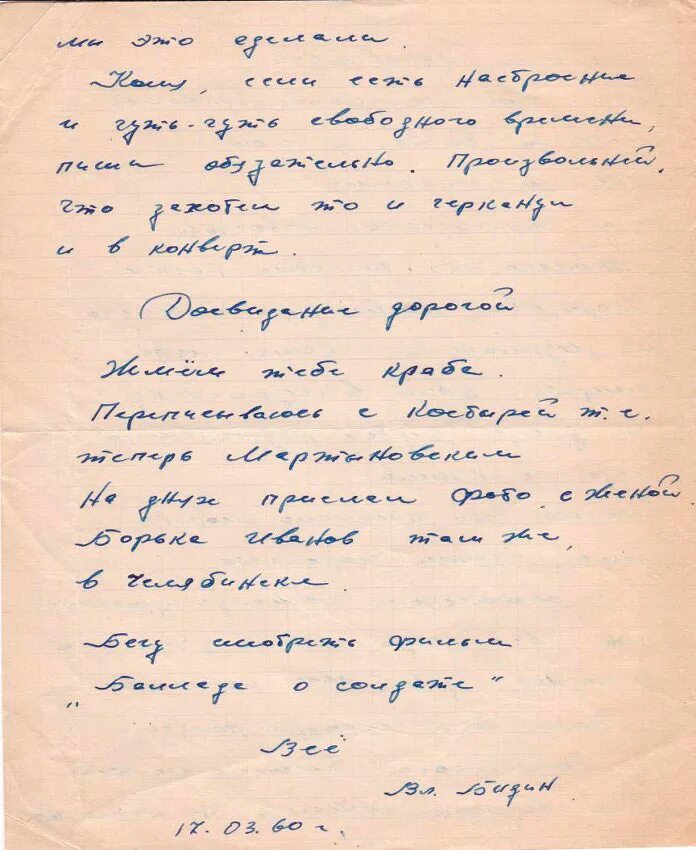 мы это сделали.
Коля, если есть настроение
и чуть-чуть свободного времени,
пиши обязательно. Произвольный,
что захотел то и черканул
и в конверт.
Досвидание дорогой
Жмём тебе краба.
Переписываюсь с Костырей т.е.
теперь Мартыновским
На днях прислал фото с женой.
Борька Иванов там же,
в Челябинске.
Бегу смотреть фильм
„Баллада о солдате"
Всё
Вл. Бидин
17.03.60 г.